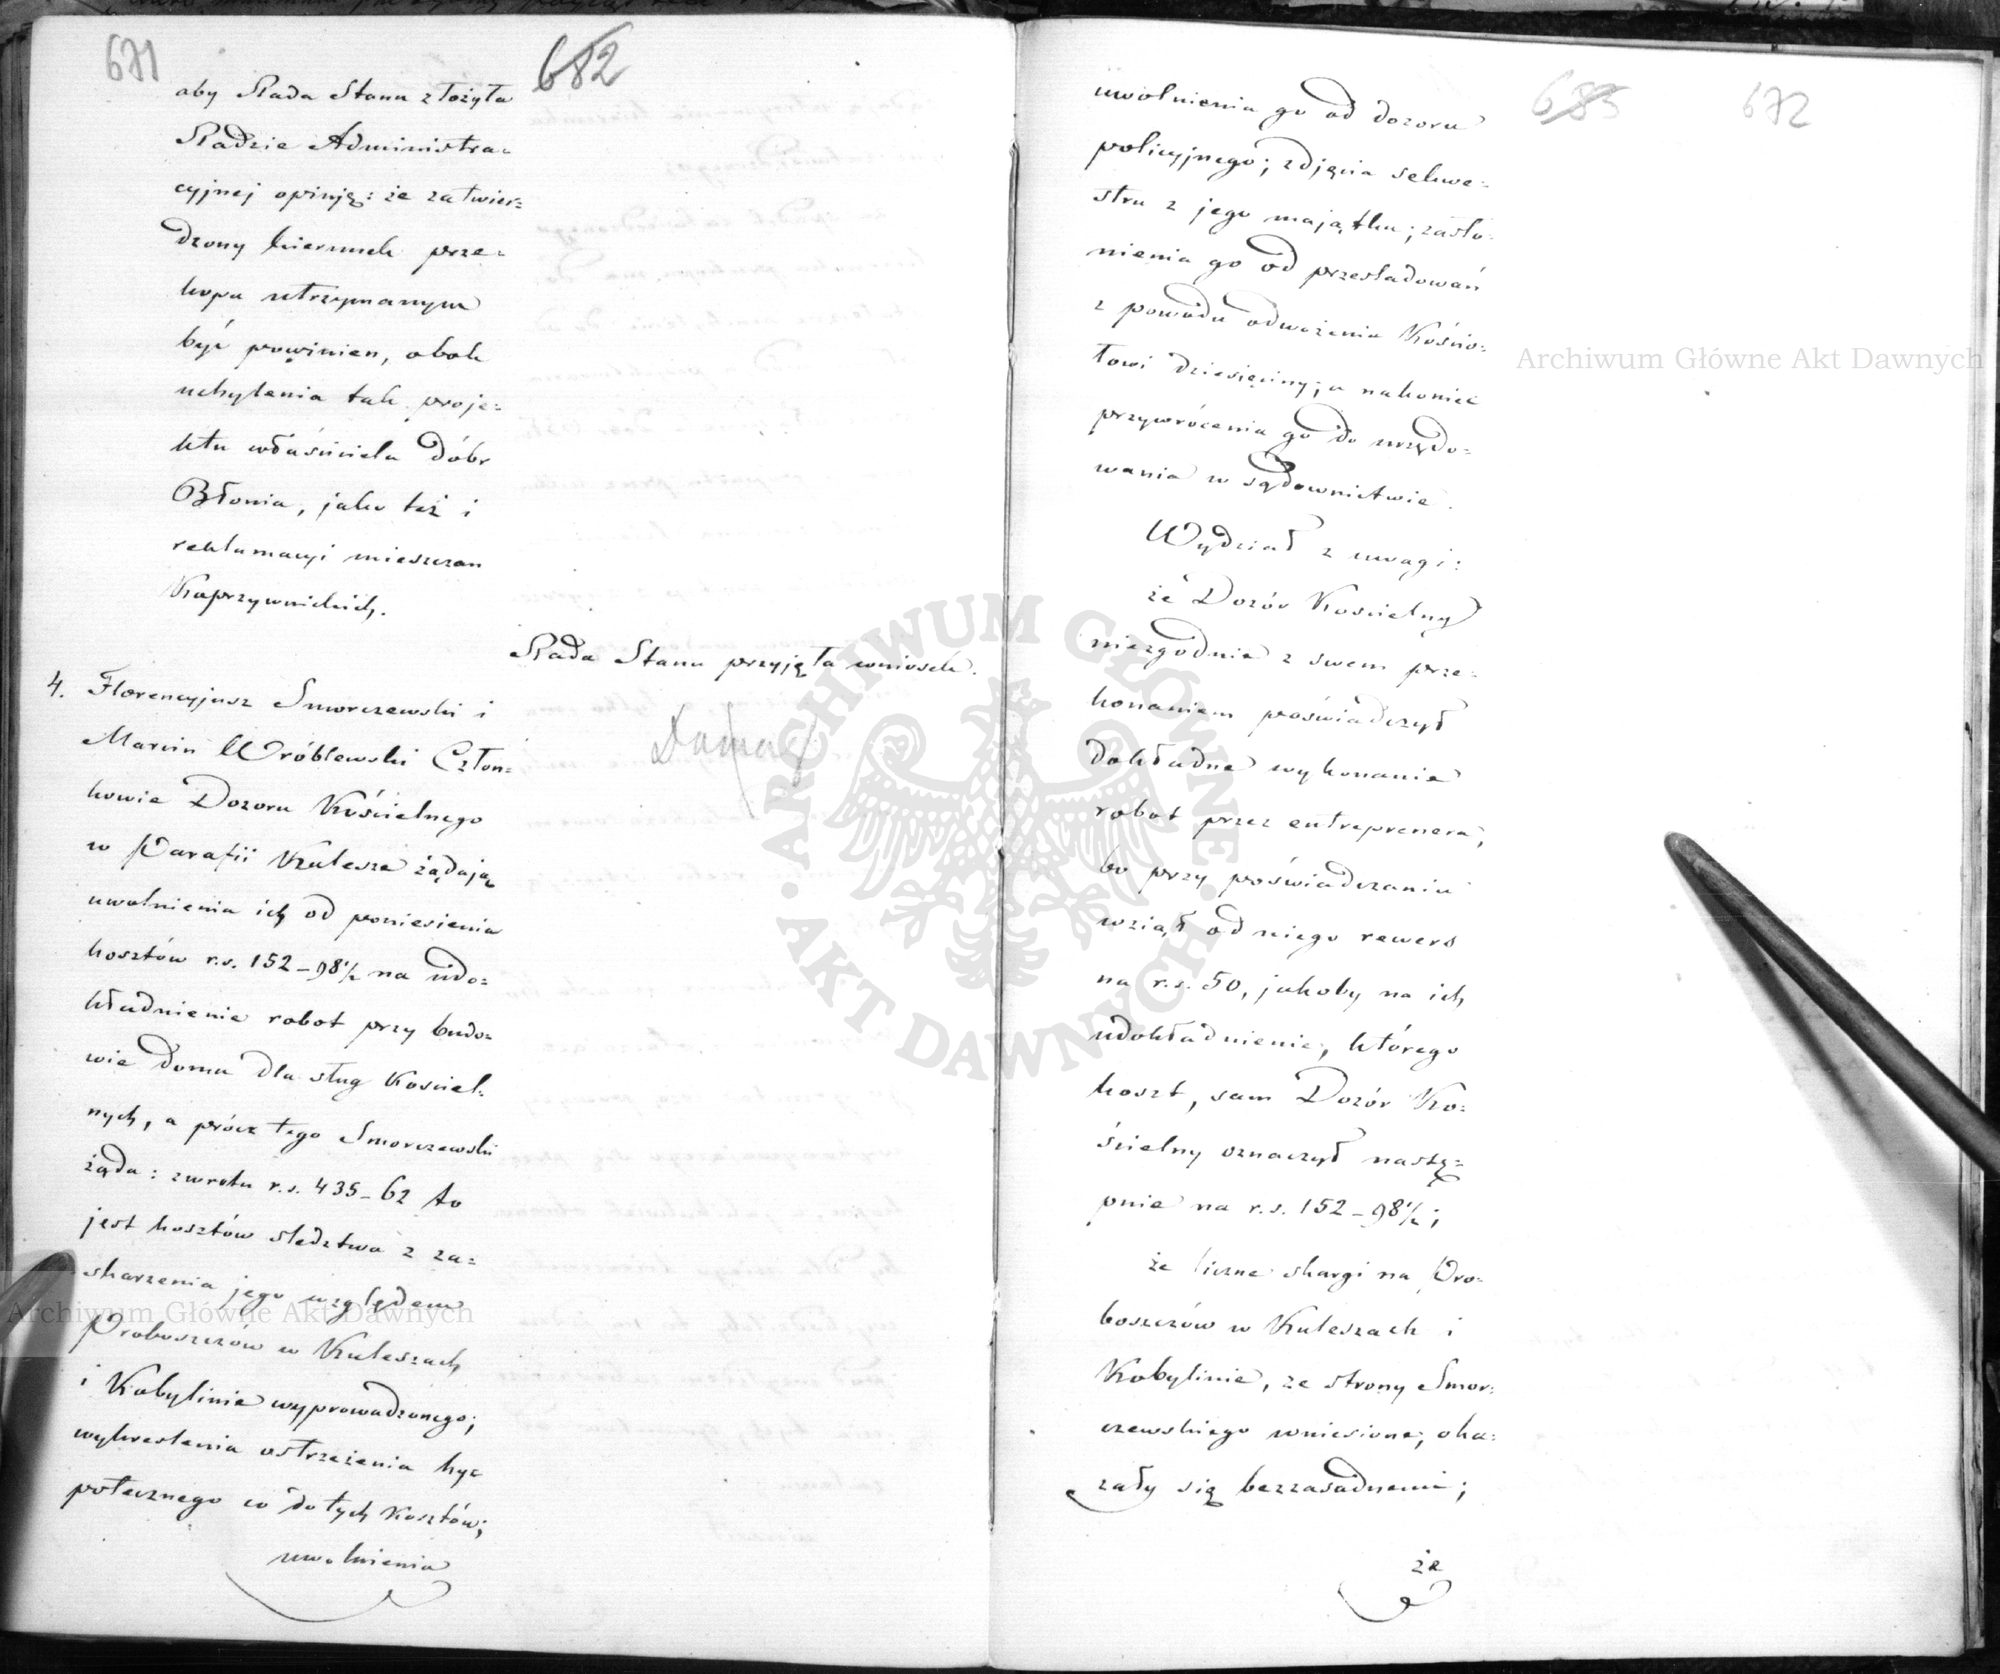 671
682
aby Rada Stanu złożyła
Radzie Administra=
cyjnej opinję: że zatwier=
dzony kierunek prze=
kopu utrzymanym
być powinien, obok
uchylenia tak proje=
ktu właściciela dóbr
Błonia, jako też i
reklamacyi mieszczan
Koprzywnickich.
Rada Stanu przyjęła wniosek.
4. Florencyjusz Smorczewski i
Marcin Wróblewski Człon=
kowie Dozoru Kościelnego
w Parafii Kulesze żądają
uwolnienia ich od poniesienia
kosztów r.s. 152-98½ na udo=
kładnienie robot przy budo=
wie domu dla sług Kościel=
nych, a prócz tego Smorczewski
żąda: zwrotu r.s. 435-62 to
jest kosztów śledztwa z za=
skarzenia jego względem
Proboszczów w Kuleszach
i Kobylinie wyprowadzonego;
wykreślenia ostrzeżenia hy=
potecznego co do tych kosztów;
uwolnienia
683
672
uwolnienia go od dozoru
policyjnego; zdjęcia sekwe=
stru z jego majątku; zasło=
nienia go od prześladowań
z powodu odmówienia Kościo=
łowi dziesięciny; a nakoniec
przywrócenia go do urzędo=
wania w sądownictwie.
Wydział z uwagi:
że Dozór Kościelny
niezgodnie z swem prze=
konaniem poświadczył
dokładne wykonanie
robot przez entreprenera,
bo przy poświadczaniu
wziął od niego rewers
na r.s. 50, jakoby na ich
udokładnienie, którego
koszt, sam Dozór Ko=
ścielny oznaczył nastę=
pnie na r.s. 152-98½;
że liczne skargi na Pro=
boszczów w Kuleszach i
Kobylinie, ze strony Smor=
czewskiego wniesione, oka=
zały się bezzasadnemi;
że
Archiwum Główne Akt Dawnych
Archiwum Główne Akt Dawnych
ARCHIWUM GŁÓWNE · AKT DAWNYCH ·